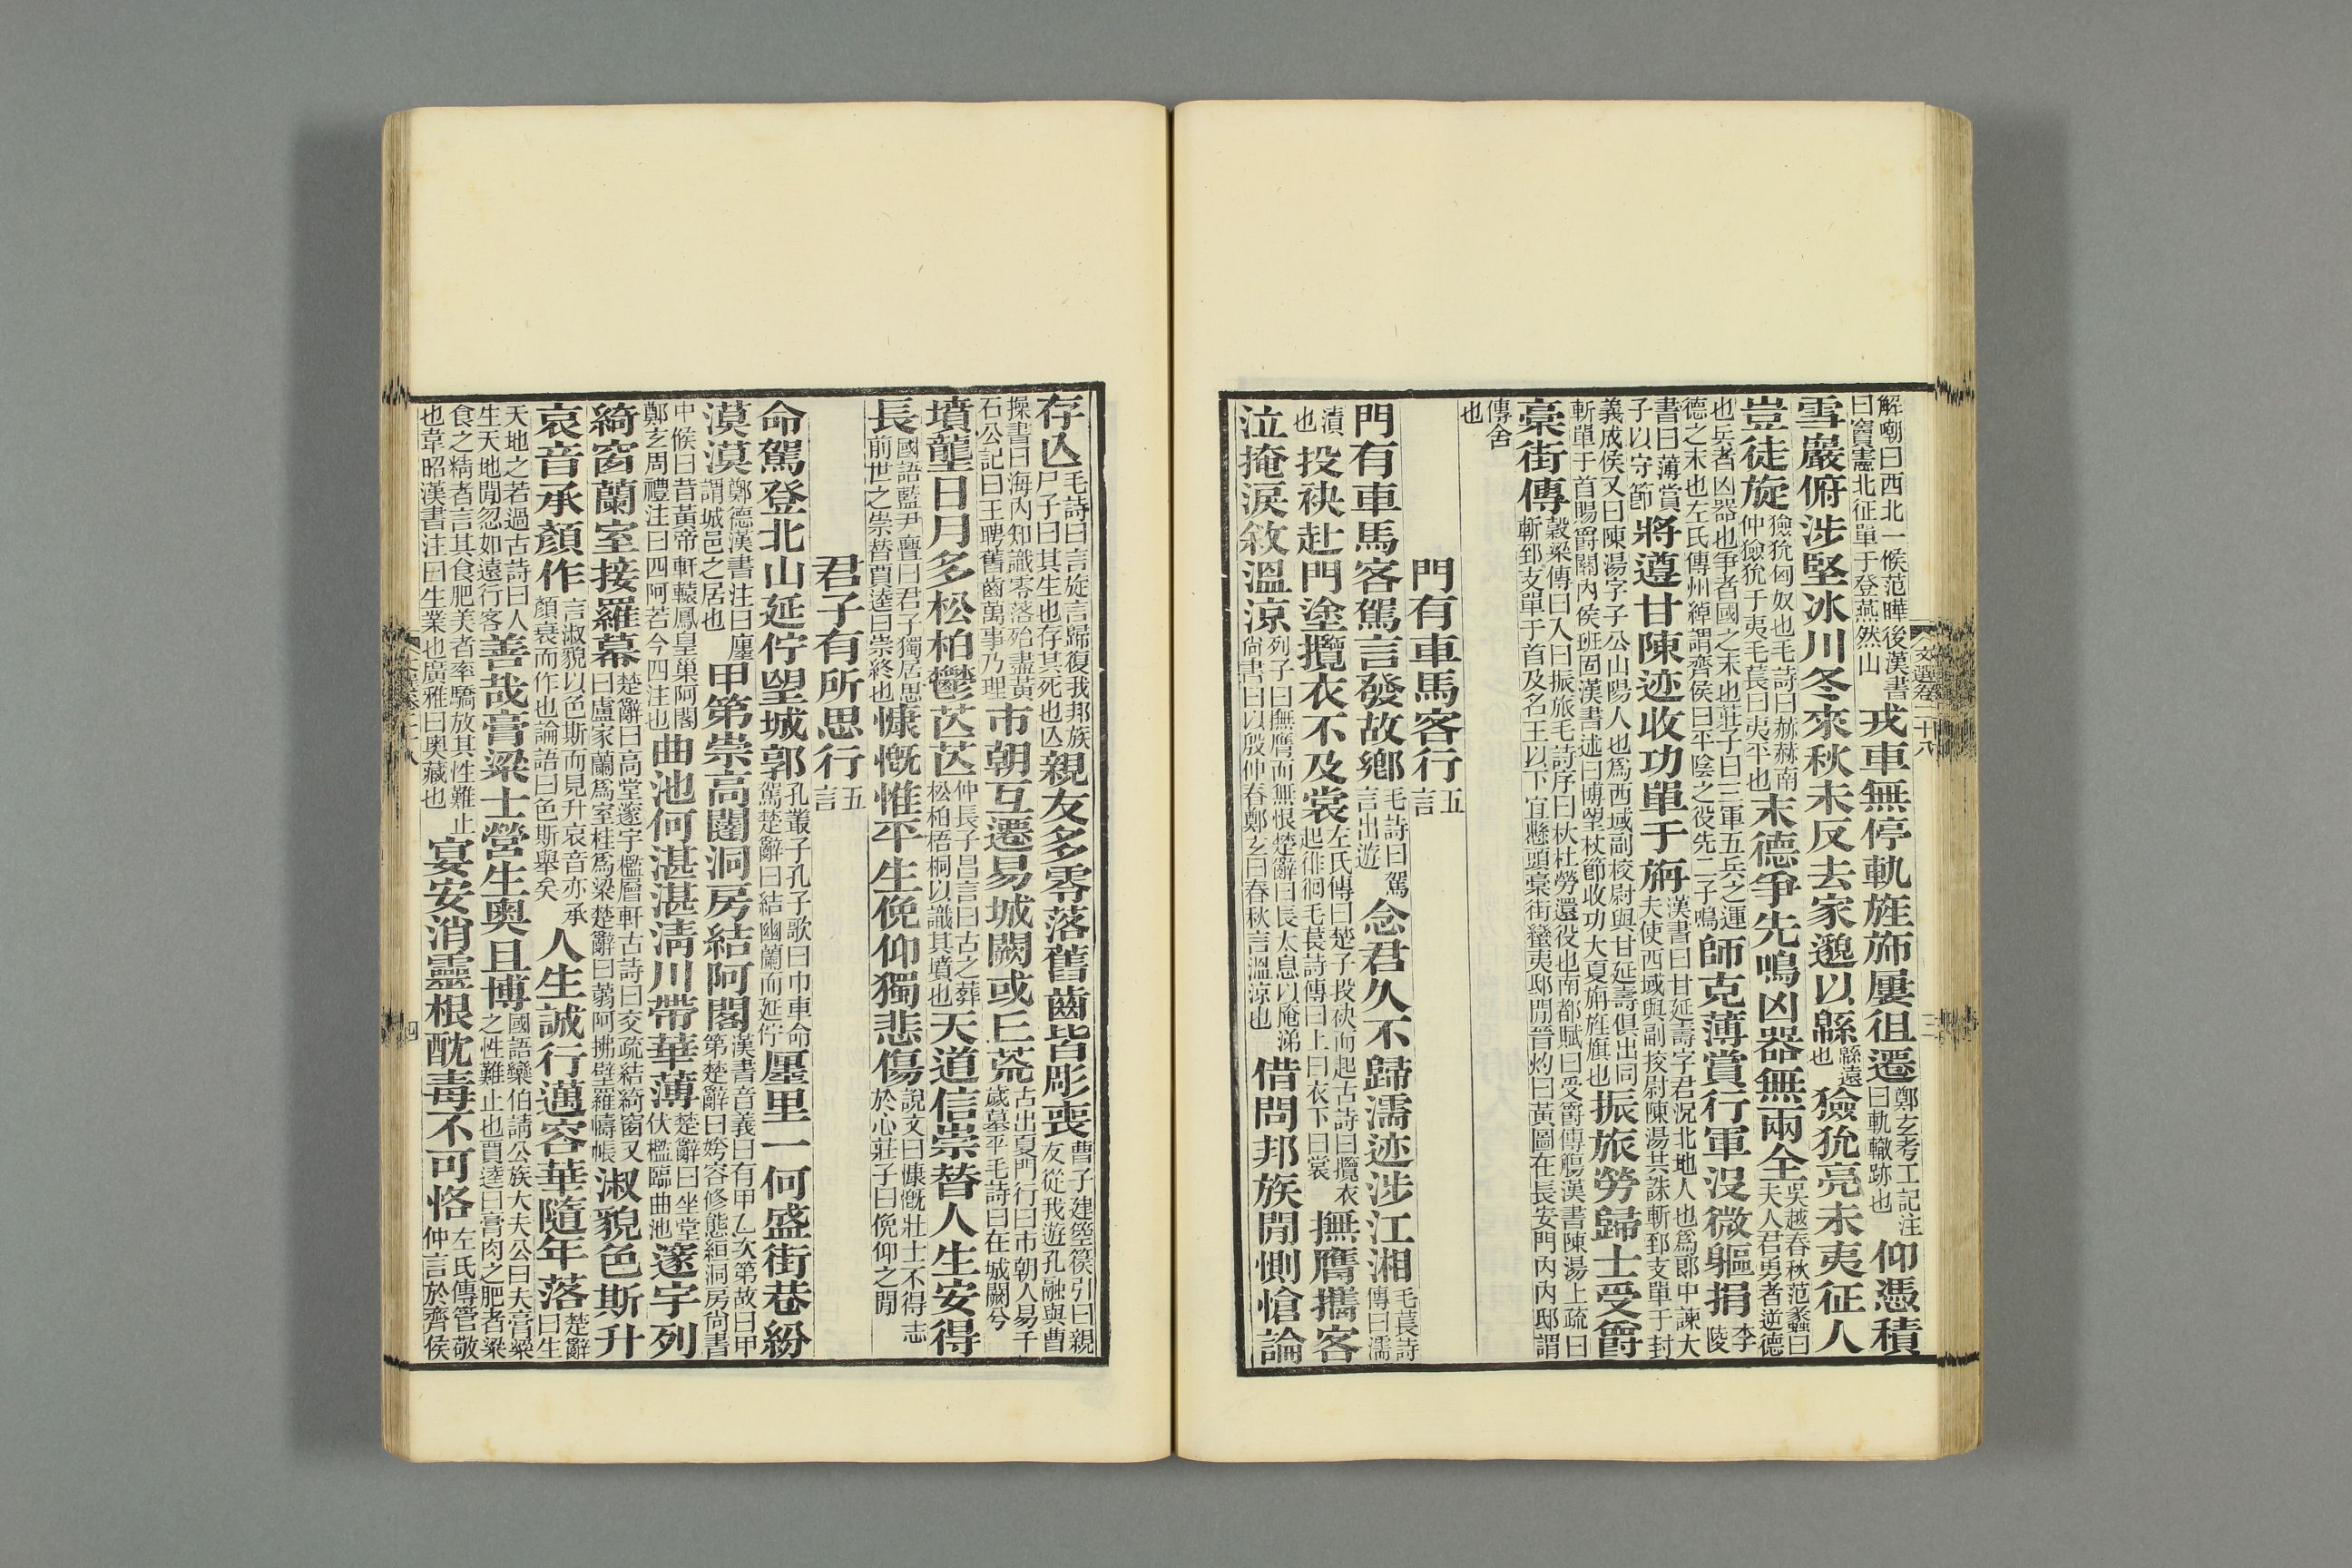 解嘲曰西北一候范曄後漢書曰竇憲北征單于登燕然山戎車無停軌旌斾屢徂遷鄭玄考工記注曰軌轍跡也仰憑積
雪巖俯涉堅冰川冬來秋未反去家邈以緜緜遠也獫狁亮未夷征人
豈徒旋獫狁匈奴也毛詩曰赫赫南仲獫狁于夷毛萇曰夷平也末德爭先鳴凶器無兩全吳越春秋范蠡曰夫人君勇者逆德
也兵者凶器也爭者國之末也莊子曰三軍五兵之運德之末也左氏傳州綽謂齊侯曰平陰之役先二子鳴師克薄賞行軍沒微軀捐李陵
書曰薄賞子以守節將遵甘陳迹收功單于旃漢書曰甘延壽字君況北地人也爲郎中諫大夫使西域與副挍尉陳湯共誅斬郅支單于封
義成侯又曰陳湯字子公山陽人也爲西域副校尉與甘延壽俱出同斬單于首賜爵關內侯班固漢書述曰博望杖節收功大夏旃旌旗也振旅勞歸士受爵
稾街傳穀梁傳曰入曰振旅毛詩序曰杕杜勞還役也南都賦曰受爵傳觴漢書陳湯上疏曰斬郅支單于首及名王以下宜懸頭稾街蠻夷邸閒晉灼曰黃圖在長安門內內邸謂
傳舍也
門有車馬客行五言
門有車馬客駕言發故鄉毛詩曰駕言出遊念君久不歸濡迹涉江湘毛萇詩傳曰濡
漬也投袂赴門塗攬衣不及裳左氏傳曰楚子投袂而起古詩曰攬衣起徘徊毛萇詩傳曰上曰衣下曰裳撫膺攜客
泣掩淚敘溫涼列子曰撫膺而無恨楚辭曰長太息以掩涕尚書曰以殷仲春鄭玄曰春秋言溫涼也借問邦族閒惻愴論
存亾毛詩曰言旋言歸復我邦族尸子曰其生也存其死也亾親友多零落舊齒皆彫喪曹子建箜篌引曰親友從我遊孔融與曹
操書曰海內知識零落殆盡黃石公記曰王聘舊齒萬事乃理市朝互遷易城闕或丘荒古出夏門行曰市朝人易千歲墓平毛詩曰在城闕兮
墳壟日月多松柏鬱芒芒仲長子昌言曰古之葬松柏梧桐以識其墳也天道信崇替人生安得
長國語藍尹亹曰君子獨居思前世之崇替賈逵曰崇終也慷慨惟平生俛仰獨悲傷說文曰慷慨壯士不得志於心莊子曰俛仰之閒
君子有所思行五言
命駕登北山延佇望城郭孔叢子孔子歌曰巾車命駕楚辭曰結幽蘭而延佇廛里一何盛街巷紛
漠漠鄭德漢書注曰廛謂城邑之居也甲第崇高闥洞房結阿閣漢書音義曰有甲乙次第故曰甲第楚辭曰姱容修態絙洞房尚書
中候曰昔黃帝軒轅鳳皇巢阿閣鄭玄周禮注曰四阿若今四注也曲池何湛湛清川帶華薄楚辭曰坐堂伏檻臨曲池邃宇列
綺窗蘭室接羅幕楚辭曰高堂邃宇檻層軒古詩曰交疏結綺窗又曰盧家蘭爲室桂爲梁楚辭曰蒻阿拂壁羅幬帳淑貌色斯升
哀音承顏作言淑貌以色斯而見升哀音亦承顏衰而作也論語曰色斯舉矣人生誠行邁容華隨年落楚辭曰生
天地之若過古詩曰人生天地閒忽如遠行客善哉膏粱士營生奧且博國語欒伯請公族大夫公曰夫膏粱之性難止也賈逵曰膏肉之肥者粱
食之精者言其食肥美者率驕放其性難止也韋昭漢書注曰生業也廣雅曰奧藏也宴安消靈根酖毒不可恪左氏傳管敬仲言於齊侯